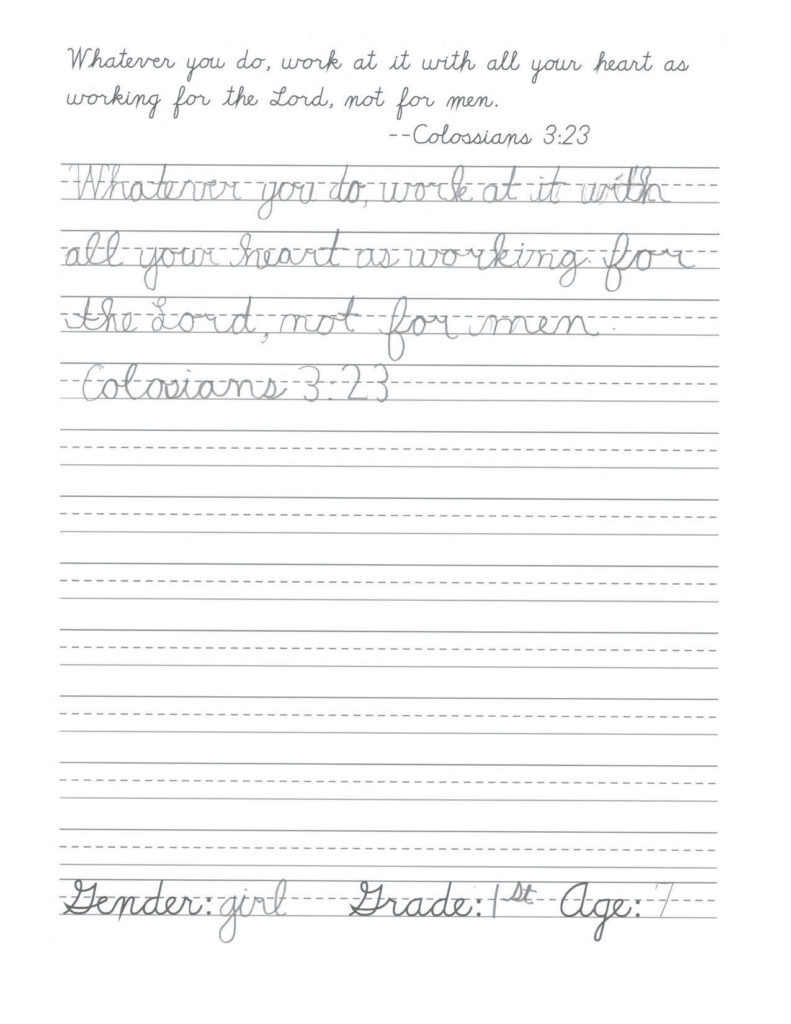 Whatever you do, work at it with all your heart as
working for the Lord, not for men.
--Colossians 3:23
Whatever you do, work at it with
all your heart as working for
the Lord, not for men.
Colosians 3:23
Gender: girl Grade: 1st Age: 7